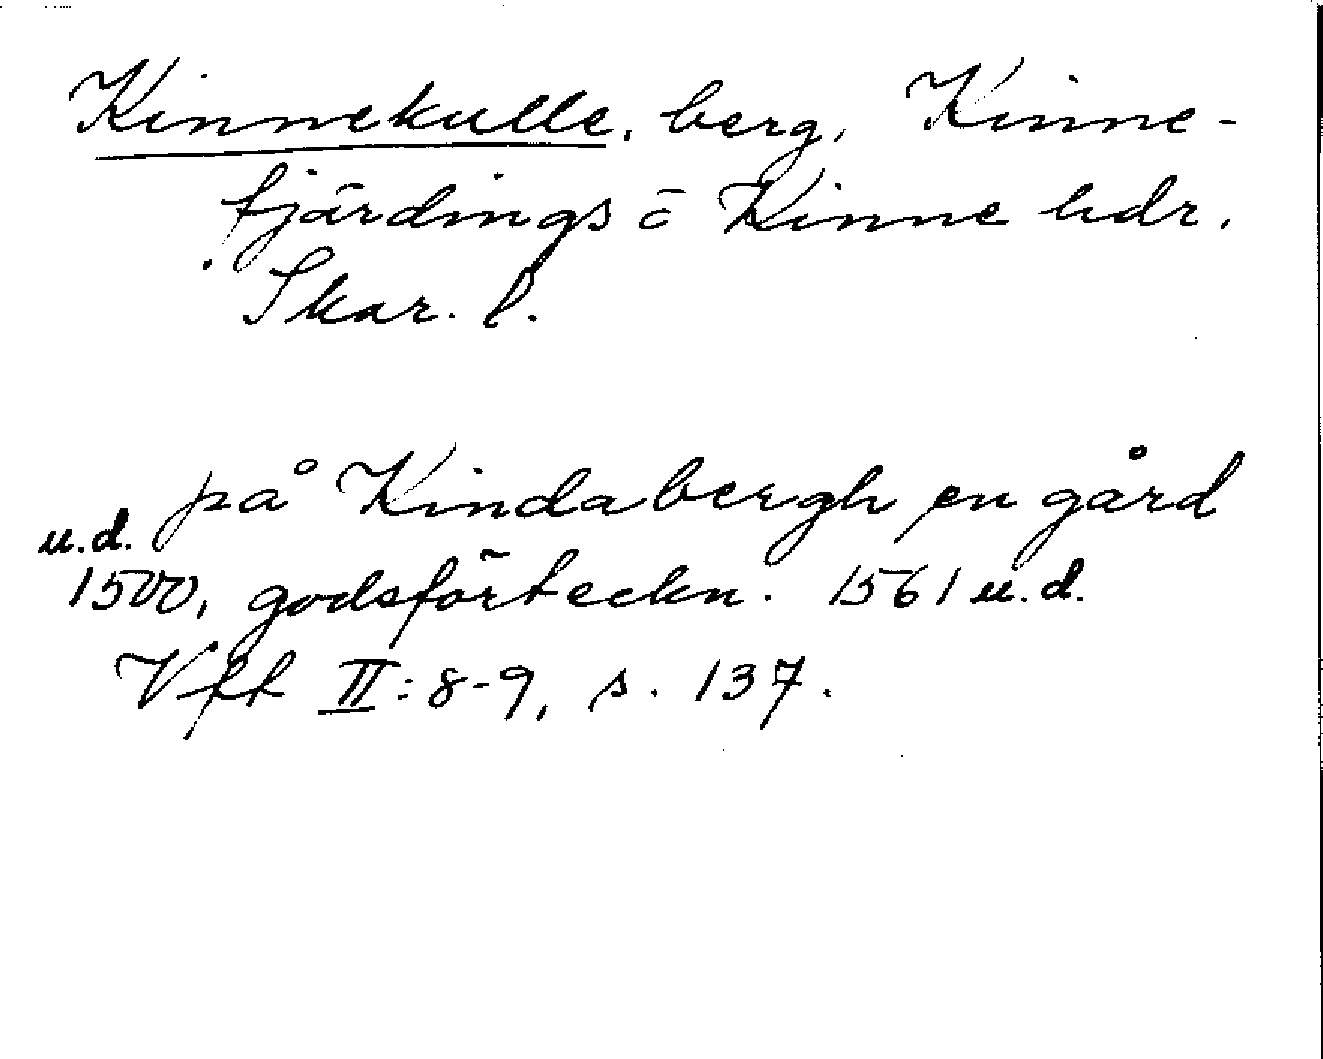 Kinnekulle, berg, Kinne-
fjärdings o Kinne hdr,
Skar. l.
på Kindabergh en gård
u.d.
1500, godsförteckn. 1561 u.d.
Vff II: 8-9, s. 137.